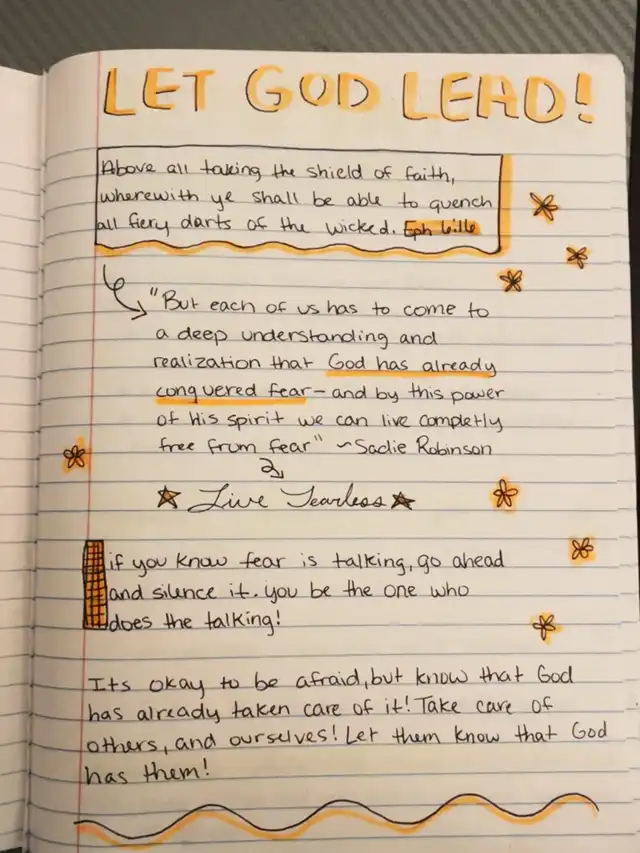 LET GOD LEAD!
Above all taking the shield of faith,
wherewith ye shall be able to quench
all fiery darts of the wicked. Eph 6:16
"But each of us has to come to
a deep understanding and
realization that God has already
conquered fear - and by this power
of His spirit we can live completly
free from fear" ~Sadie Robinson
Live Fearless
if you know fear is talking, go ahead
and silence it. you be the one who
does the talking!
Its okay to be afraid, but know that God
has already taken care of it! Take care of
others, and ourselves! Let them know that God
has them!